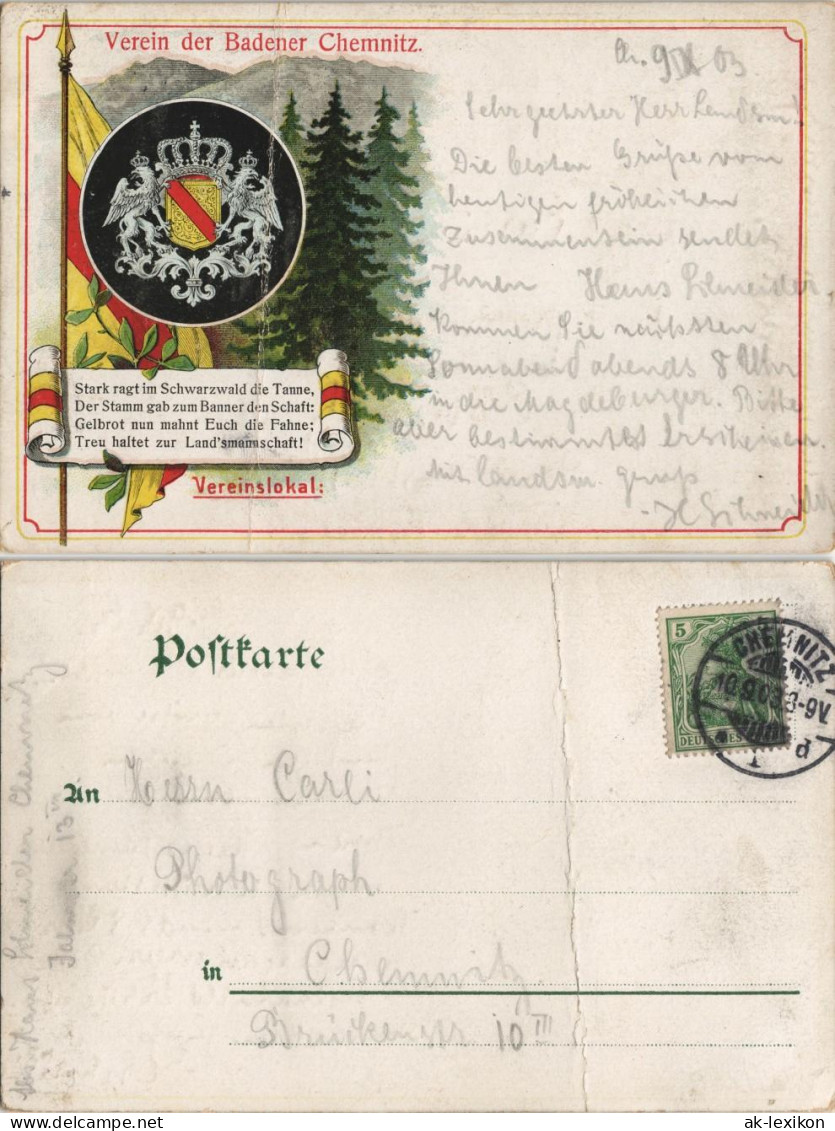 Verein der Badener Chemnitz.
Ch. 9/IX 03
Sehr geehrter Herr Landsm!
Die besten Grüße vom
heutigen fröhlichen
Zusammensein sendet
Ihnen Hans Schneider.
Kommen Sie nächsten
Sonnabend abends 8 Uhr
in die Magdeburger. Bitte
aber bestimmtes Erscheinen.
Mit landsm. gruß
H Schneider
Stark ragt im Schwarzwald die Tanne,
Der Stamm gab zum Banner den Schaft:
Gelbrot nun mahnt Euch die Fahne;
Treu haltet zur Land'smannschaft!
Vereinslokal:
Postkarte
5
CHEMNITZ
10.9.03.8-9V.
1 d
An Herrn Carli
Photograph
in Chemnitz
Brückenstr 10 III
Hans Schneider Chemnitz
13
delcampe.net
ak-lexikon